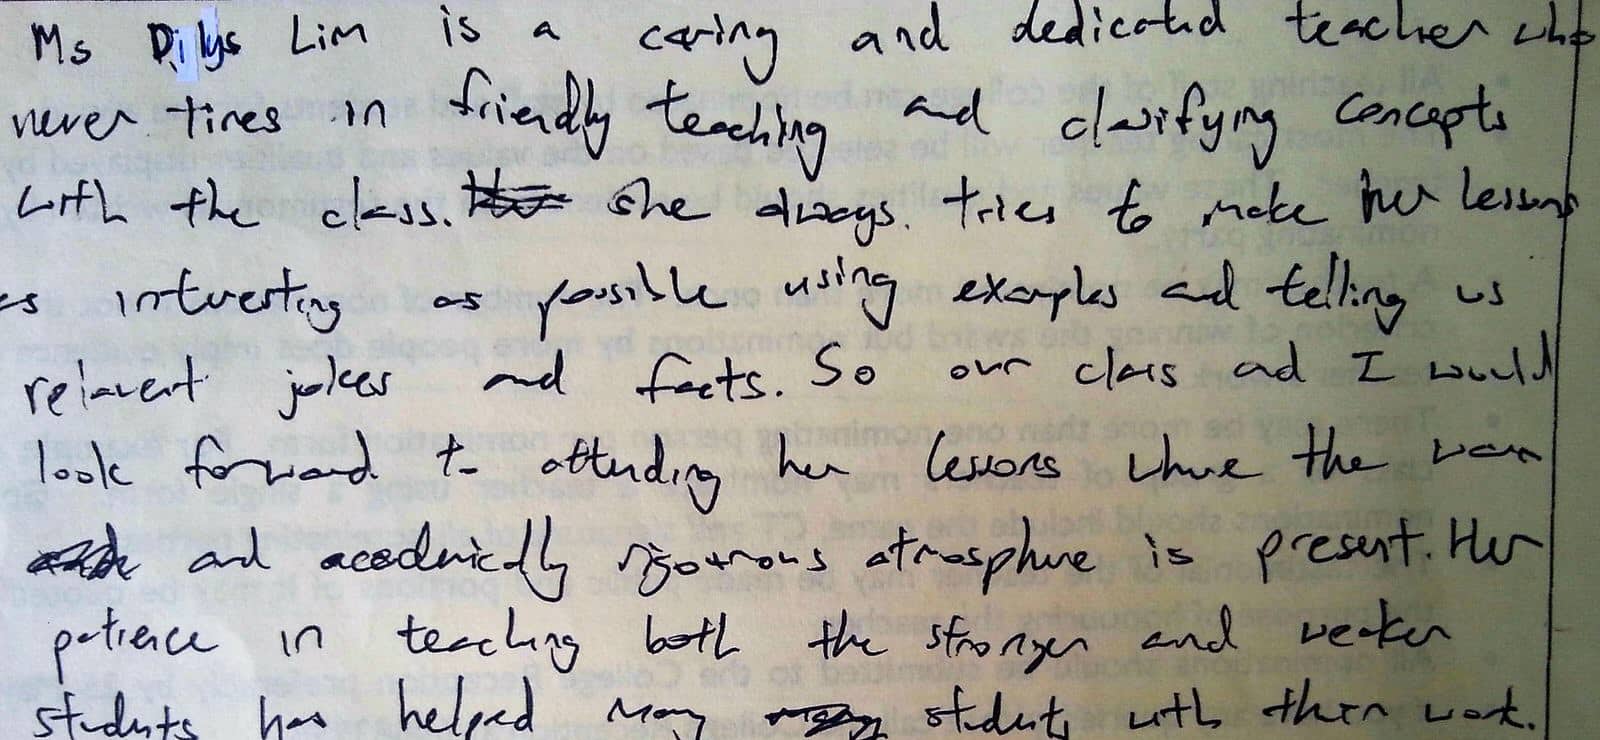 Ms Dilys Lim is a caring and dedicated teacher who
never tires in friendly teaching and clarifying concepts
with the class. She always tries to make her lessons
as interesting as possible using examples and telling us
relavent jokes and facts. So our class and I would
look forward to attending her lessons where the warm
and academically rigourous atmosphere is present. Her
patience in teaching both the stronger and weaker
students has helped many students with their work.